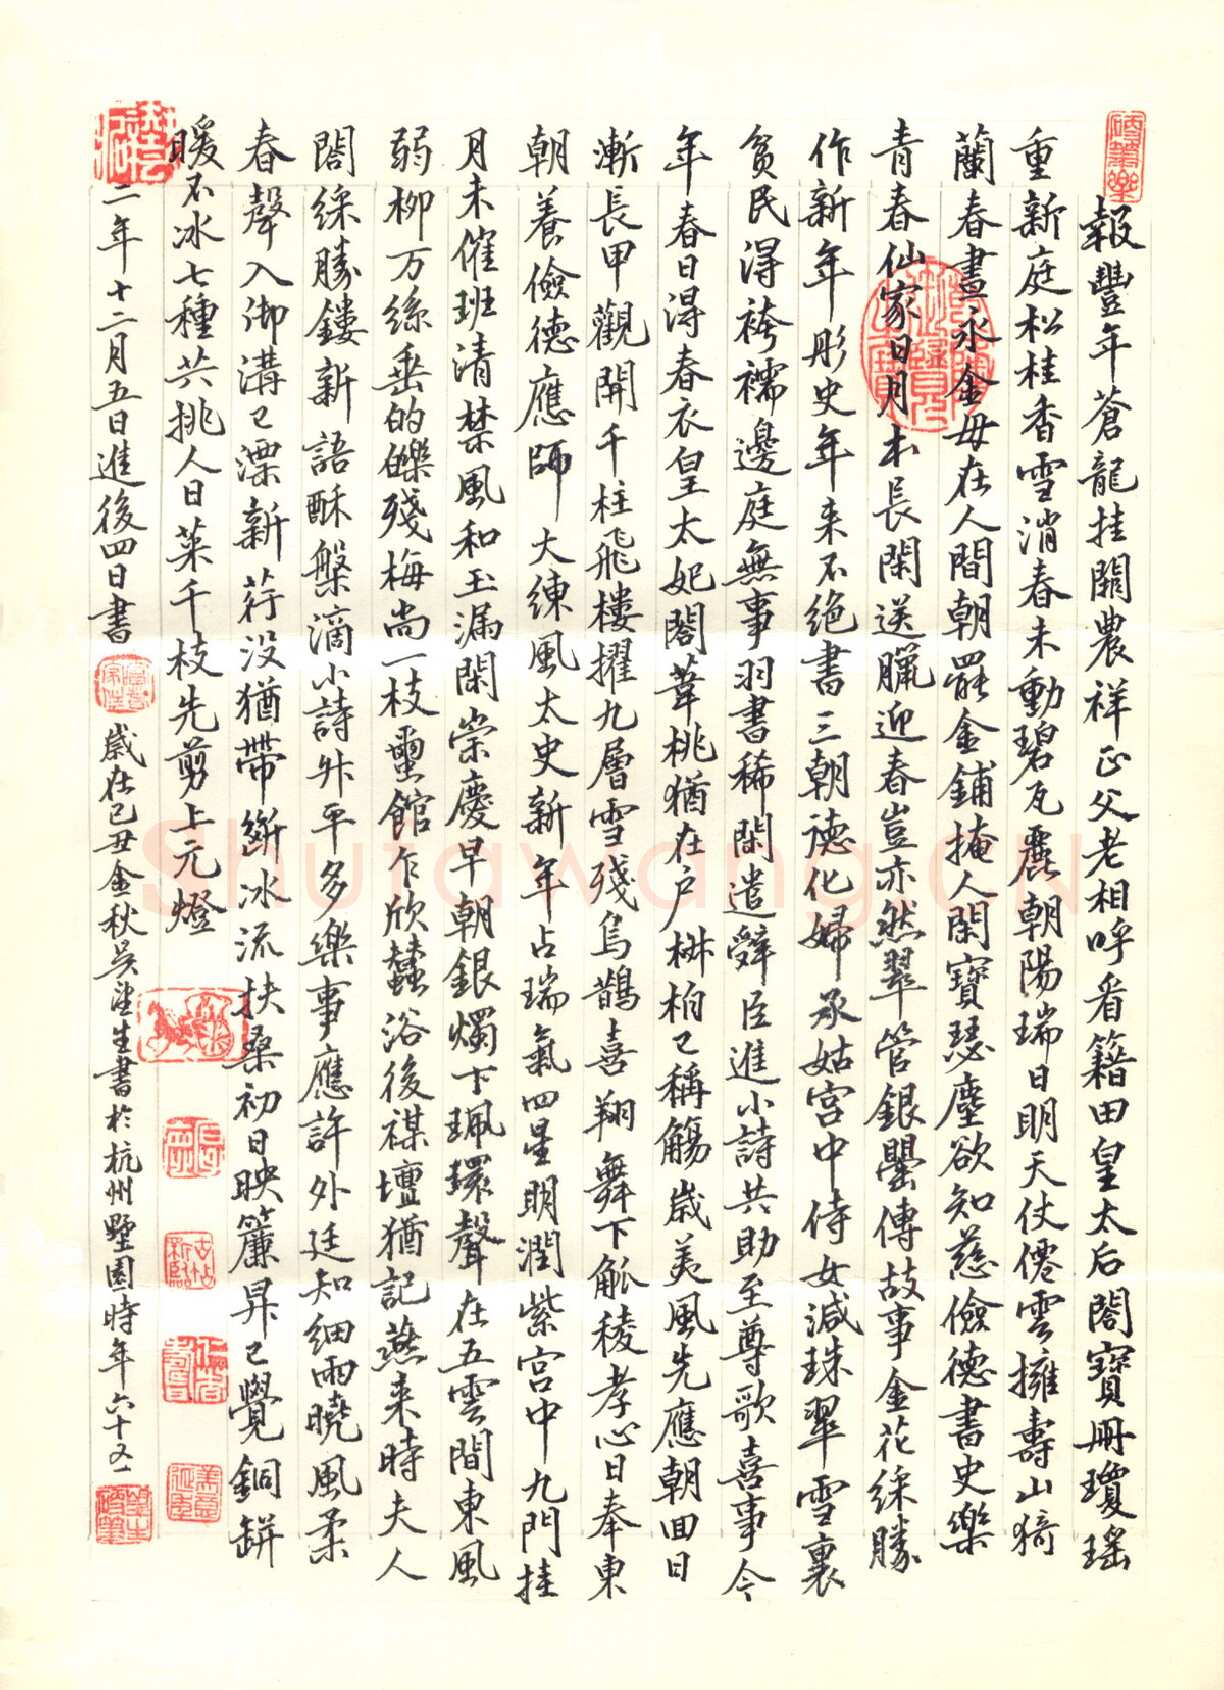 報豐年蒼龍挂闕農祥正父老相呼看籍田皇太后閤寶冊瓊瑤
重新庭松桂香雪消春未動碧瓦麗朝陽瑞日明天仗僊雲擁壽山猗
蘭春晝永金母在人間朝罷金鋪掩人閑寶瑟塵欲知慈儉德書史樂
青春仙家日月本長閑送臘迎春豈亦然翠管銀罌傳故事金花綵勝
作新年彤史年来不絶書三朝德化婦承姑宫中侍女減珠翠雪裏
貧民得袴襦邊庭無事羽書稀閑遣舜臣進小詩共助至尊歌喜事今
年春日得春衣皇太妃閤葦桃猶在户椒柏已稱觴歲美風先應朝回日
漸長甲觀開千柱飛樓擢九層雪殘烏鵲喜翔舞下觚稜孝心日奉東
朝養儉德應師大練風太史新年占瑞氣四星明潤紫宫中九門挂
月未催班清禁風和玉漏閑崇慶早朝銀燭下珮環聲在五雲間東風
弱柳万絲垂的皪殘梅尚一枝璽館乍欣蠶浴後禖壇猶記燕来時夫人
閤綵勝鏤新語酥槃滴小詩昇平多樂事應許外廷知細雨曉風柔
春聲入御溝已漂新荇没猶帶斷冰流扶桑初日映簾昇已覺銅缾
暖不冰七種共挑人日菜千枝先剪上元燈
二年十二月五日進後四日書
歲在己丑金秋吴望生書於杭州墅園時年六十又一
Shufawang.CN